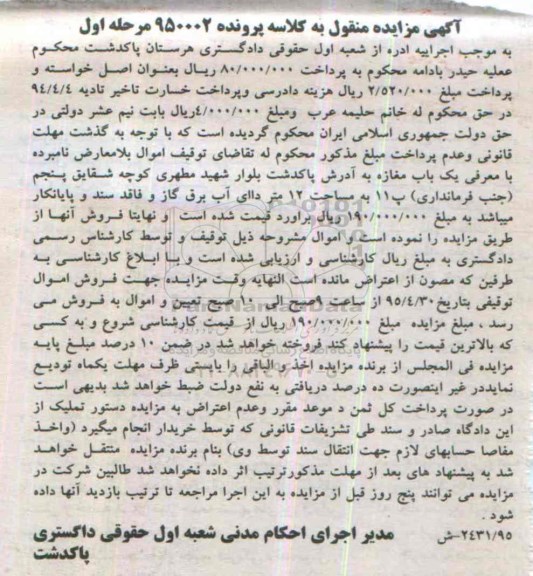 آگهی مزایده منقول به کلاسه پرونده ۹۵۰۰۰۲ مرحله اول
به موجب اجراییه ادره از شعبه اول حقوقی دادگستری هرستان پاکدشت محکوم
عملیه حیدر بادامه محکوم به پرداخت ۸۰/۰۰۰/۰۰۰ ریال بعنوان اصل خواسته و
پرداخت مبلغ ۲/۵۲۰/۰۰۰ ریال هزینه دادرسی وپرداخت خسارت تاخیر تادیه ۹۴/۴/۴
در حق محکوم له خانم حلیمه عرب ومبلغ ۴/۰۰۰/۰۰۰ریال بابت نیم عشر دولتی در
حق دولت جمهوری اسلامی ایران محکوم گردیده است که با توجه به گذشت مهلت
قانونی وعدم پرداخت مبلغ مذکور محکوم له تقاضای توقیف اموال بلامعارض نامبرده
با معرفی یک باب مغازه به آدرش پاکدشت بلوار شهید مطهری کوچه شقایق پنجم
(جنب فرمانداری) پ۱۱ به مساحت ۱۲ متر دااى آب برق گاز و فاقد سند و پایانکار
میباشد به مبلغ ۱۹۰/۰۰۰/۰۰۰ ریال براورد قیمت شده است و نهایتا فروش آنها از
طریق مزایده را نموده است و اموال مشروحه ذیل توقیف و توسط کارشناس رسمی
دادگستری به مبلغ ریال کارشناسی و ارزیابی شده است و با ابلاغ کارشناسی به
طرفین که مصون از اعتراض مانده است النهایه وقت مزایده جهت فروش اموال
توقیفی بتاریخ ۹۵/۴/۳۰ از ساعت ۹صبح الی ۱۰ صبح تعیین و اموال به فروش می
رسد ، مبلغ مزایده مبلغ ۱۹۰/۰۰۰/۰۰۰ ریال از قیمت کارشناسی شروع و به کسی
که بالاترین قیمت را پیشنهاد کند فروخته خواهد شد در ضمن ۱۰ درصد مبلغ پایه
مزایده فی المجلس از برنده مزایده اخذ و الباقی را بایستی ظرف مهلت یکماه تودیع
نمایددر غیر اینصورت ده درصد دریافتی به نفع دولت ضبط خواهد شد بدیهی است
در صورت پرداخت کل ثمن د موعد مقرر وعدم اعتراض به مزایده دستور تملیک از
این دادگاه صادر و سند طی تشزیفات قانونی که توسط خریدار انجام میگیرد (واخذ
مفاصا حسابهای لازم جهت انتقال سند توسط وی) بنام برنده مزایده منتقل خواهد
شد به پیشنهاد های بعد از مهلت مذکورترتیب اثر داده نخواهد شد طالبین شرکت در
مزایده می توانند پنج روز قبل از مزایده به این اجرا مراجعه تا ترتیب بازدید آنها داده
شود .
۲۴۳۱/۹۵-ش مدیر اجرای احکام مدنی شعبه اول حقوقی داگستری
پاکدشت